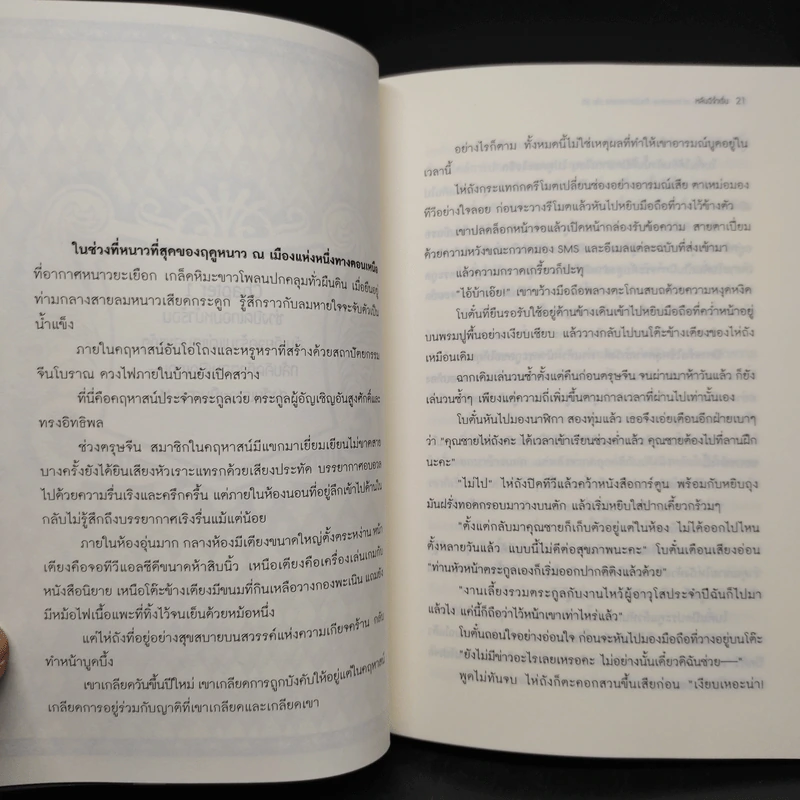 ในช่วงที่หนาวที่สุดของฤดูหนาว ณ เมืองแห่งหนึ่งทางตอนเหนือ
ที่อากาศหนาวยะเยือก เกล็ดหิมะขาวโพลนปกคลุมทั่วผืนดิน เมื่อยืนอยู่
ท่ามกลางสายลมหนาวเสียดกระดูก รู้สึกราวกับลมหายใจจะจับตัวเป็น
น้ำแข็ง
ภายในคฤหาสน์อันโอ่โถงและหรูหราที่สร้างด้วยสถาปัตยกรรม
จีนโบราณ ดวงไฟภายในบ้านยังเปิดสว่าง
ที่นี่คือคฤหาสน์ประจำตระกูลเว่ย ตระกูลผู้อัญเชิญอันสูงศักดิ์และ
ทรงอิทธิพล
ช่วงตรุษจีน สมาชิกในคฤหาสน์มีแขกมาเยี่ยมเยียนไม่ขาดสาย
บางครั้งยังได้ยินเสียงหัวเราะแทรกด้วยเสียงประทัด บรรยากาศอบอวล
ไปด้วยความรื่นเริงและครึกครื้น แต่ภายในห้องนอนที่อยู่ลึกเข้าไปด้านใน
กลับไม่รู้สึกถึงบรรยากาศเริงรื่นแม้แต่น้อย
ภายในห้องอุ่นมาก กลางห้องมีเตียงขนาดใหญ่ตั้งตระหง่าน หน้า
เตียงคือจอทีวีแอลซีดีขนาดห้าสิบนิ้ว เหนือเตียงคือเครื่องเล่นเกมกับ
หนังสือนิยาย เหนือโต๊ะข้างเตียงมีขนมที่กินเหลือวางกองพะเนิน แถมยัง
มีหม้อไฟเนื้อแพะที่ทิ้งไว้จนเย็นด้วยหม้อหนึ่ง
แต่ไห่ถังที่อยู่อย่างสุขสบายบนสวรรค์แห่งความเกียจคร้าน กลับ
ทำหน้าบูดบึ้ง
เขาเกลียดวันขึ้นปีใหม่ เขาเกลียดการถูกบังคับให้อยู่แต่ในคฤหาสน์
เกลียดการอยู่ร่วมกับญาติที่เขาเกลียดและเกลียดเขา
21
อย่างไรก็ตาม ทั้งหมดนี้ไม่ใช่เหตุผลที่ทำให้เขาอารมณ์บูดอยู่ใน
เวลานี้
ไห่ถังกระแทกกดรีโมตเปลี่ยนช่องอย่างอารมณ์เสีย ตาเหม่อมอง
ทีวีอย่างใจลอย ก่อนจะวางรีโมตแล้วหันไปหยิบมือถือที่วางไว้ข้างตัว
เขาปลดล็อกหน้าจอแล้วเปิดหน้ากล่องรับข้อความ สายตาเปี่ยม
ด้วยความหวังขณะกวาดมอง SMS และอีเมลแต่ละฉบับที่ส่งเข้ามา
แล้วความกราดเกรี้ยวก็ปะทุ
"ไอ้บ้าเอ๊ย!" เขาขว้างมือถือพลางตะโกนสบถด้วยความหงุดหงิด
โบตั๋นที่ยืนรอรับใช้อยู่ด้านข้างเดินเข้าไปหยิบมือถือที่คว่ำหน้าอยู่
บนพรมปูพื้นอย่างเงียบเชียบ แล้ววางกลับไปบนโต๊ะข้างเตียงของไห่ถัง
เหมือนเดิม
ฉากเดิมเล่นวนซ้ำตั้งแต่คืนก่อนตรุษจีน จนผ่านมาห้าวันแล้ว ก็ยัง
เล่นวนซ้ำๆ เพียงแต่ความถี่เพิ่มขึ้นตามกาลเวลาที่ผ่านไปเท่านั้นเอง
โบตั๋นหันไปมองนาฬิกา สองทุ่มแล้ว เธอจึงเอ่ยเตือนอีกฝ่ายเบาๆ
ว่า "คุณชายไห่ถังคะ ได้เวลาเข้าเรียนช่วงค่ำแล้ว คุณชายต้องไปที่ลานฝึก
นะคะ"
"ไม่ไป" ไห่ถังปิดทีวีแล้วคว้าหนังสือการ์ตูน พร้อมกับหยิบถุง
มันฝรั่งทอดกรอบมาวางบนตัก แล้วเริ่มหยิบใส่ปากเคี้ยวกร้วมๆ
"ตั้งแต่กลับมาคุณชายก็เก็บตัวอยู่แต่ในห้อง ไม่ได้ออกไปไหน
ตั้งหลายวันแล้ว แบบนี้ไม่ดีต่อสุขภาพนะคะ" โบตั๋นเตือนเสียงอ่อน
"ท่านหัวหน้าตระกูลเองก็เริ่มออกปากติติงแล้วด้วย"
"งานเลี้ยงรวมตระกูลกับงานไหว้ผู้อาวุโสประจำปีฉันก็ไปมา
แล้วไง แค่นี้ก็ถือว่าไว้หน้าเขาเท่าไหร่แล้ว"
โบตั๋นถอนใจอย่างอ่อนใจ ก่อนจะหันไปมองมือถือที่วางอยู่บนโต๊ะ
"ยังไม่มีข่าวอะไรเลยเหรอคะ ไม่อย่างนั้นเดี๋ยวดิฉันช่วย——"
พูดไม่ทันจบ ไห่ถังก็ตะคอกสวนขึ้นเสียก่อน "เงียบเหอะน่า!